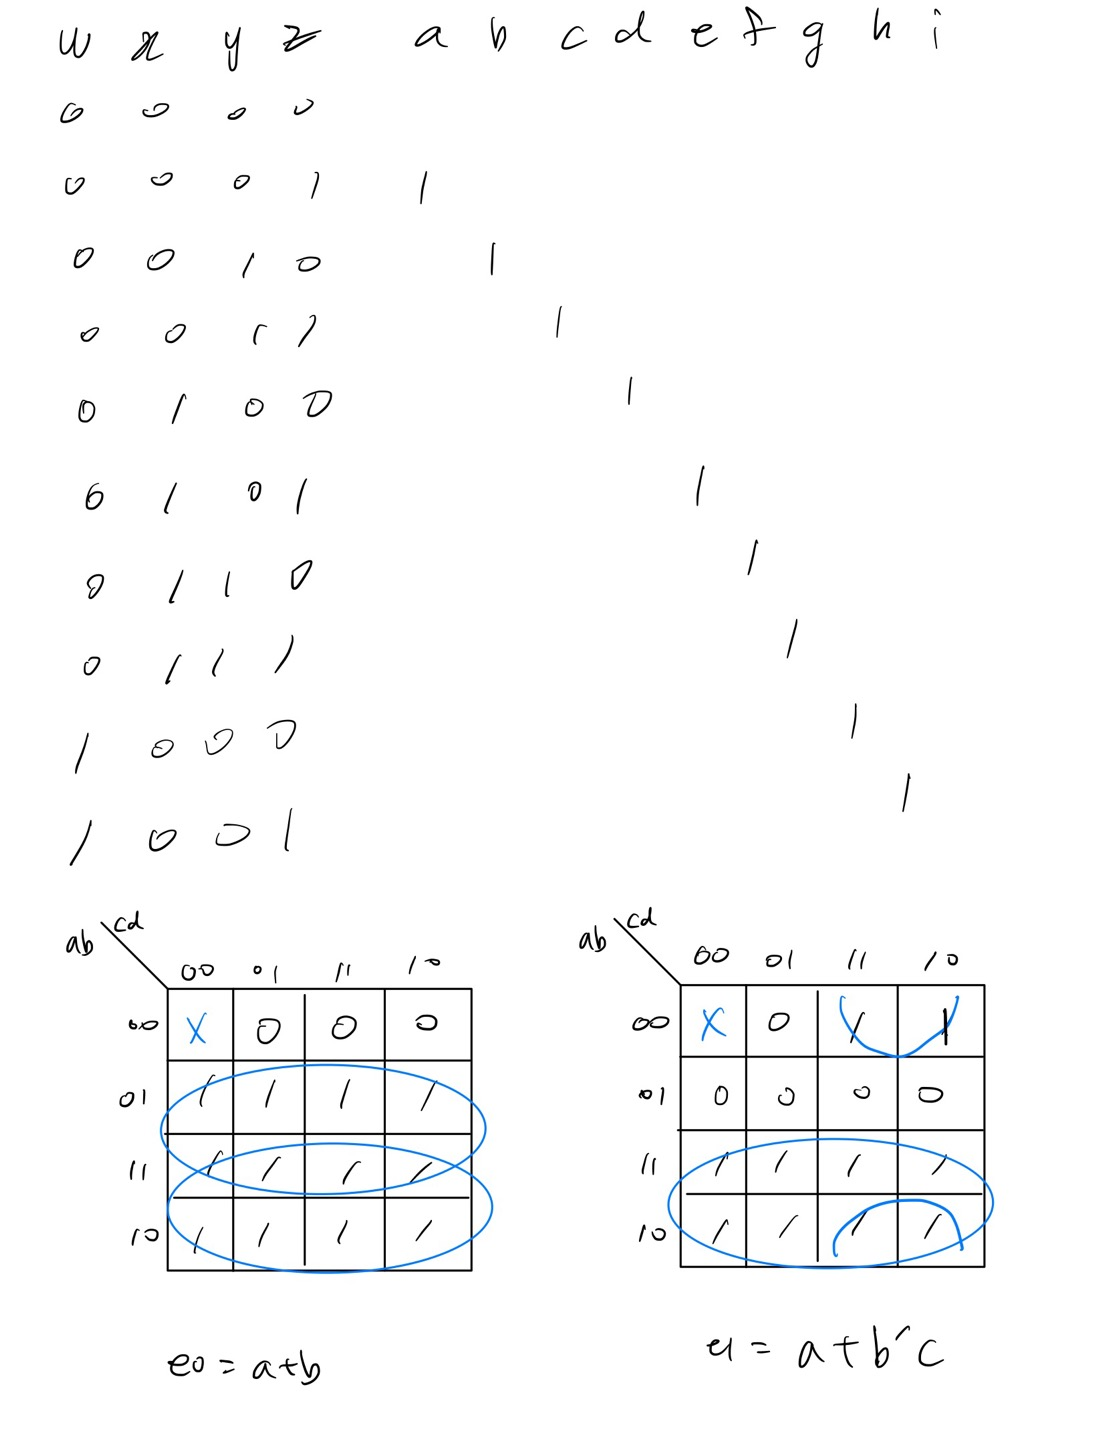 w x y z a b c d e f g h i
0 0 0 0
0 0 0 1 1
0 0 1 0 1
0 0 1 1 1
0 1 0 0 1
0 1 0 1 1
0 1 1 0 1
0 1 1 1 1
1 0 0 0 1
1 0 0 1 1
ab cd
00 01 11 10
00 X 0 0 0
01 1 1 1 1
11 1 1 1 1
10 1 1 1 1
e0 = a+b
ab cd
00 01 11 10
00 X 0 1 1
01 0 0 0 0
11 1 1 1 1
10 1 1 1 1
e1 = a+b'c